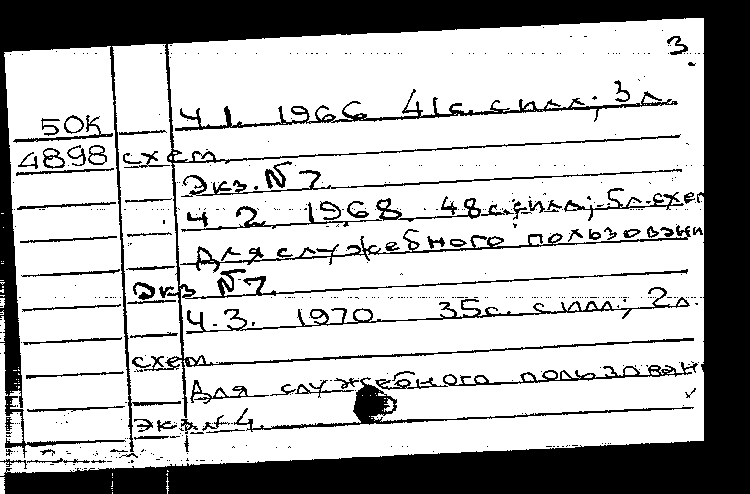 3
50К Ч 1. 1966 41с. с илл; 3 л.
4898 схем.
Экз. № 7.
Ч. 2. 1968. 48 с. с илл; 5л. схем
Для служебного пользовани
Экз № 7.
Ч. 3. 1970. 35с. с илл; 2л.
схем
Для служебного пользован
экз № 4.